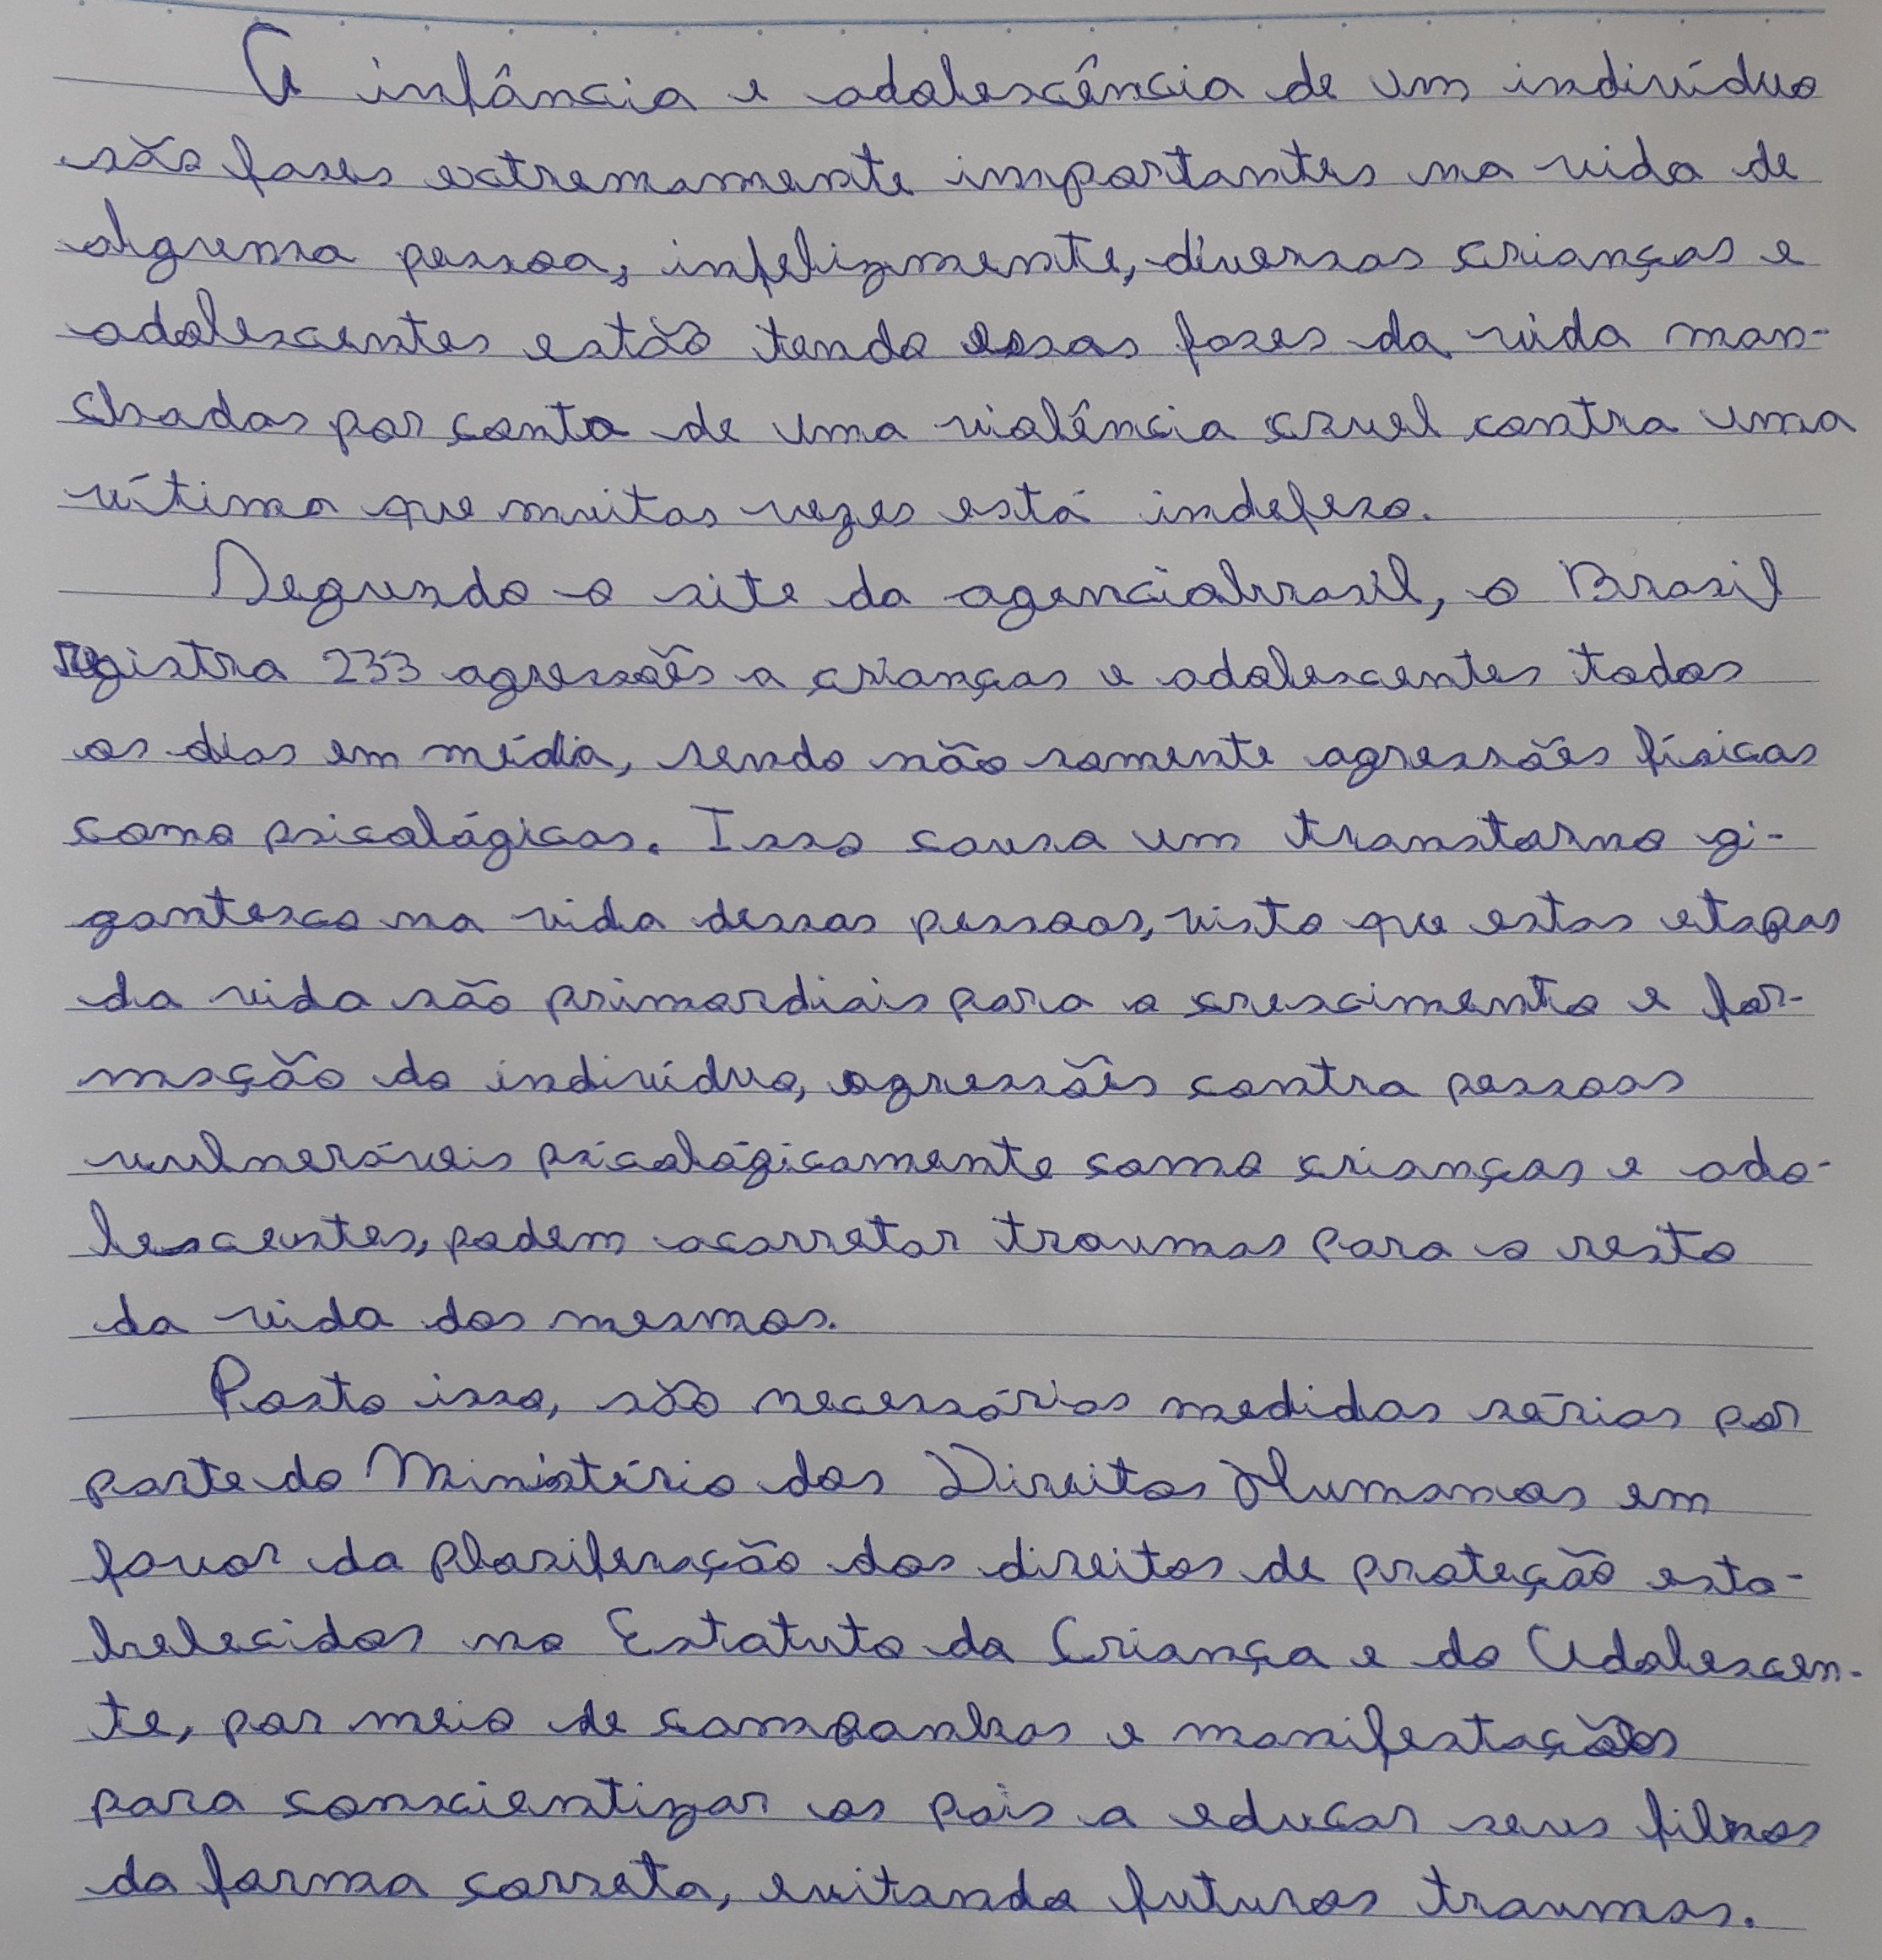 A infância e adolescência de um indivíduo
são fases extremamente importantes na vida de
alguma pessoa, infelizmente, diversas crianças e
adolescentes estão tendo essas fases da vida man-
chadas por conta de uma violência cruel contra uma
vítima que muitas vezes está indefesa.
Segundo o site da agenciabrasil, o Brasil
registra 233 agressões a crianças e adolescentes todos
os dias em média, sendo não somente agressões físicas
como psicológicas. Isso causa um transtorno gi-
gantesco na vida dessas pessoas, visto que estas etapas
da vida são primordiais para o crescimento e for-
mação do indivíduo, agressões contra pessoas
vulneráveis psicológicamente como crianças e ado-
lescentes, podem acarretar traumas para o resto
da vida dos mesmos.
Posto isso, são necessárias medidas sérias por
parte do Ministério dos Direitos Humanos em
favor da plosiferação dos direitos de proteção esta-
belecidos no Estatuto da Criança e do Adolescen-
te, por meio de campanhas e manifestações
para conscientizar os pais a educar seus filhos
da forma correta, evitando futuros traumas.